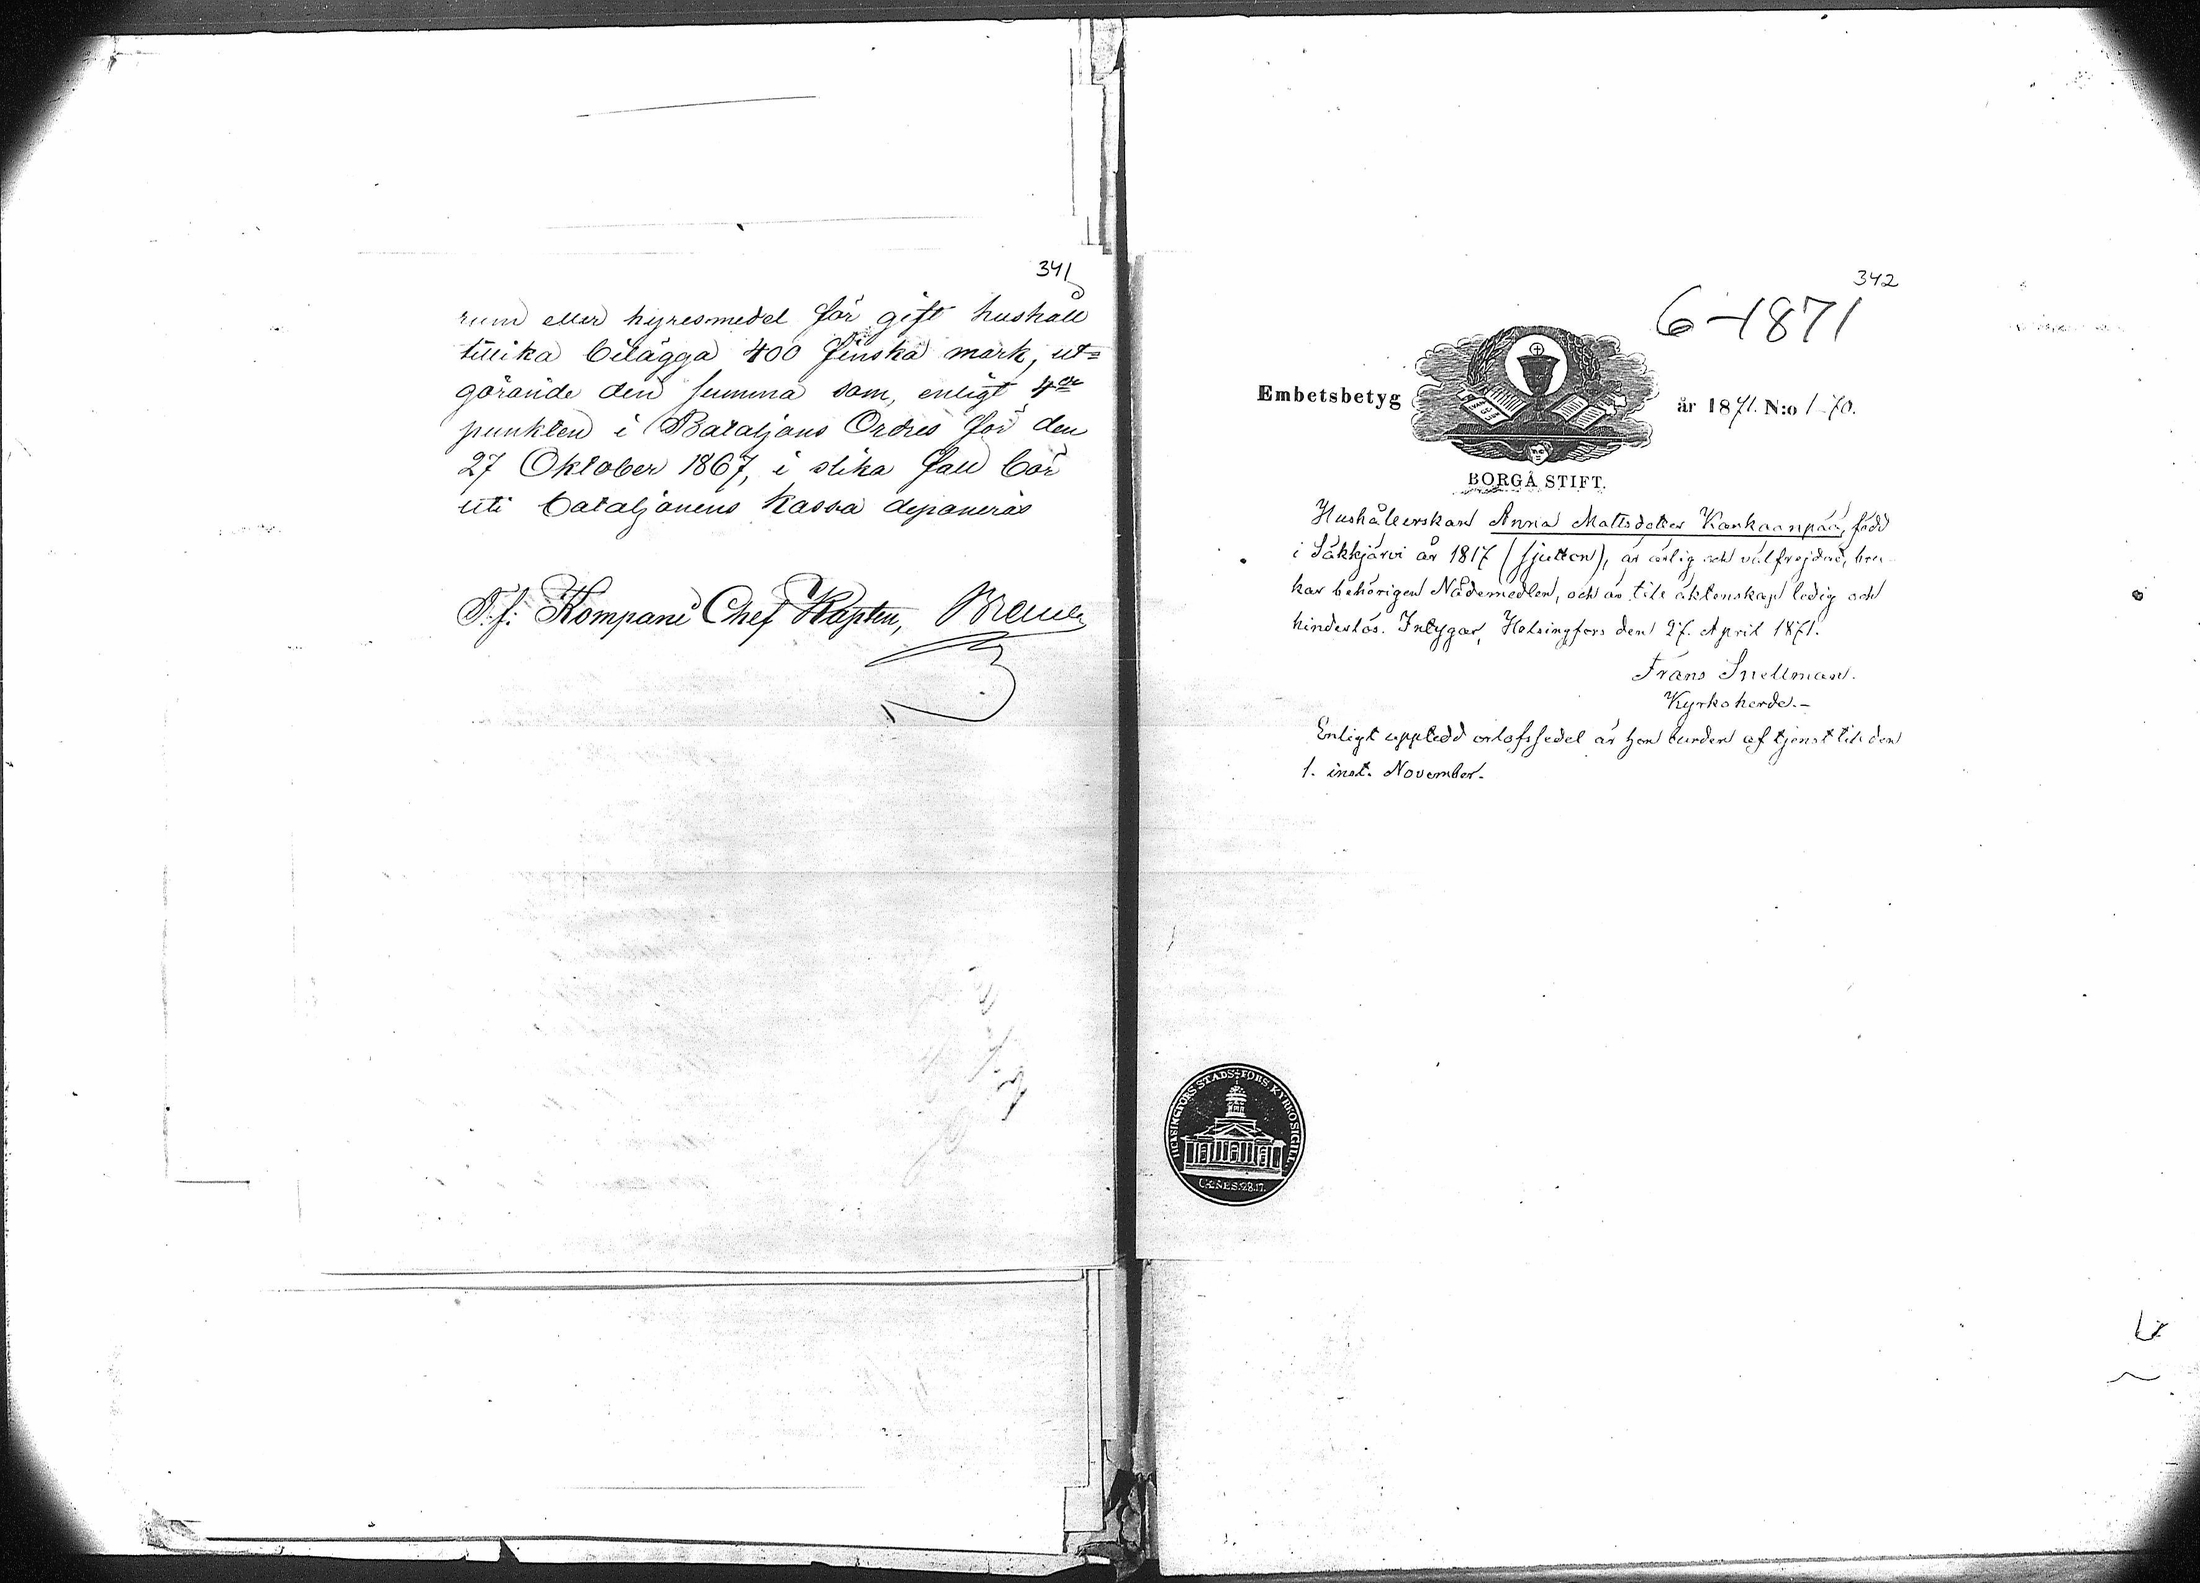 341
rum eller hyresmedel för gift hushåll
tillika bilägga 400 finska mark, ut=
görande den summa som, enligt 4de
punkten i Bataljons Ordres för den
27 Oktober 1867, i slika fall bör
uti bataljonens kassa deponeras
T.f. Kompani Chef Kapten,
342
6-1871
Embetsbetyg
år 1871. N:o 1-70.
BORGÅ STIFT.
Hushållerskan Anna Mattsdotter Kankaanpää, född
i Säkkjärvi år 1817 (sjutton), är ärlig och välfrejdad, bru-
kar behörigen Nådemedlen, och är till äktenskap ledig och
hinderlös. Intygar, Helsingfors den 27. April 1871.
Frans Snellman.
Kyrkoherde.-
Enligt uppledd orlofssedel är hon bunden af tjenst till den
1. inst. November.
HELSINGFORS STADS-FÖRS. KYRKOSIGILL.
GENES. 28.17.